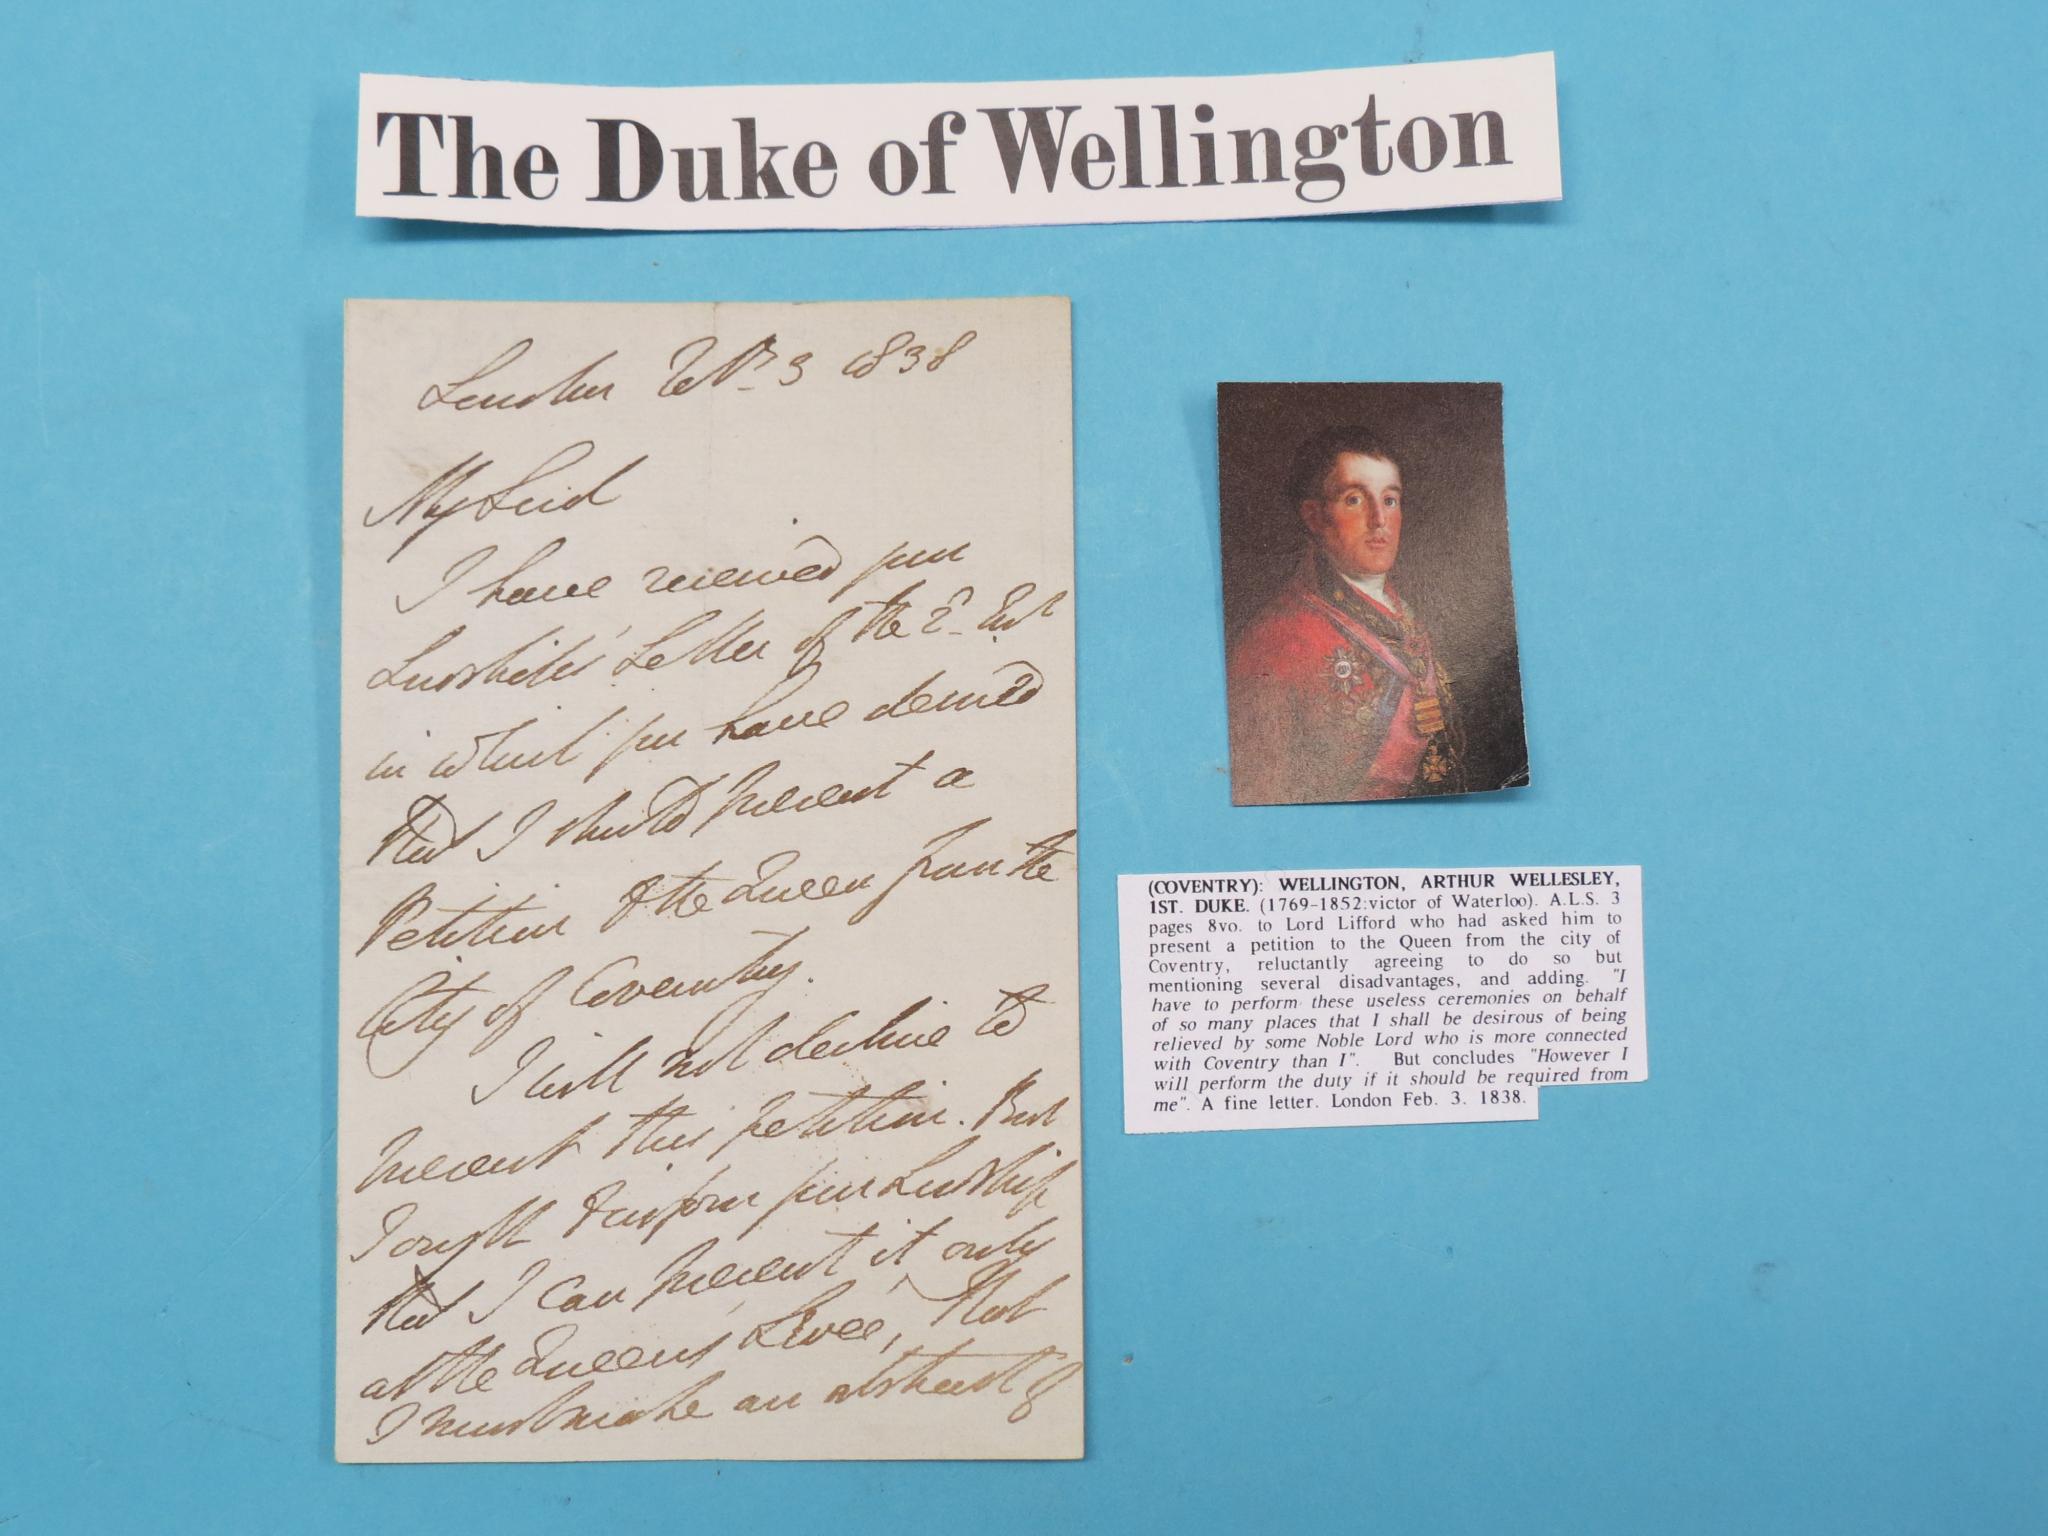 The Duke of Wellington
London Feb. 3 1838
My Lord
I have received your
Lordship's Letter of the 2d Inst
in which you have desired
that I should present a
Petition to the Queen from the
City of Coventry.
I will not decline to
present this petition. But
I ought to inform your Lordship
that I can present it only
at the Queen's Levee; that
I must make an abstract of
(COVENTRY): WELLINGTON, ARTHUR WELLESLEY,
1ST. DUKE. (1769-1852:victor of Waterloo). A.L.S. 3
pages 8vo. to Lord Lifford who had asked him to
present a petition to the Queen from the city of
Coventry, reluctantly agreeing to do so but
mentioning several disadvantages, and adding. "I
have to perform these useless ceremonies on behalf
of so many places that I shall be desirous of being
relieved by some Noble Lord who is more connected
with Coventry than I". But concludes "However I
will perform the duty if it should be required from
me". A fine letter. London Feb. 3. 1838.